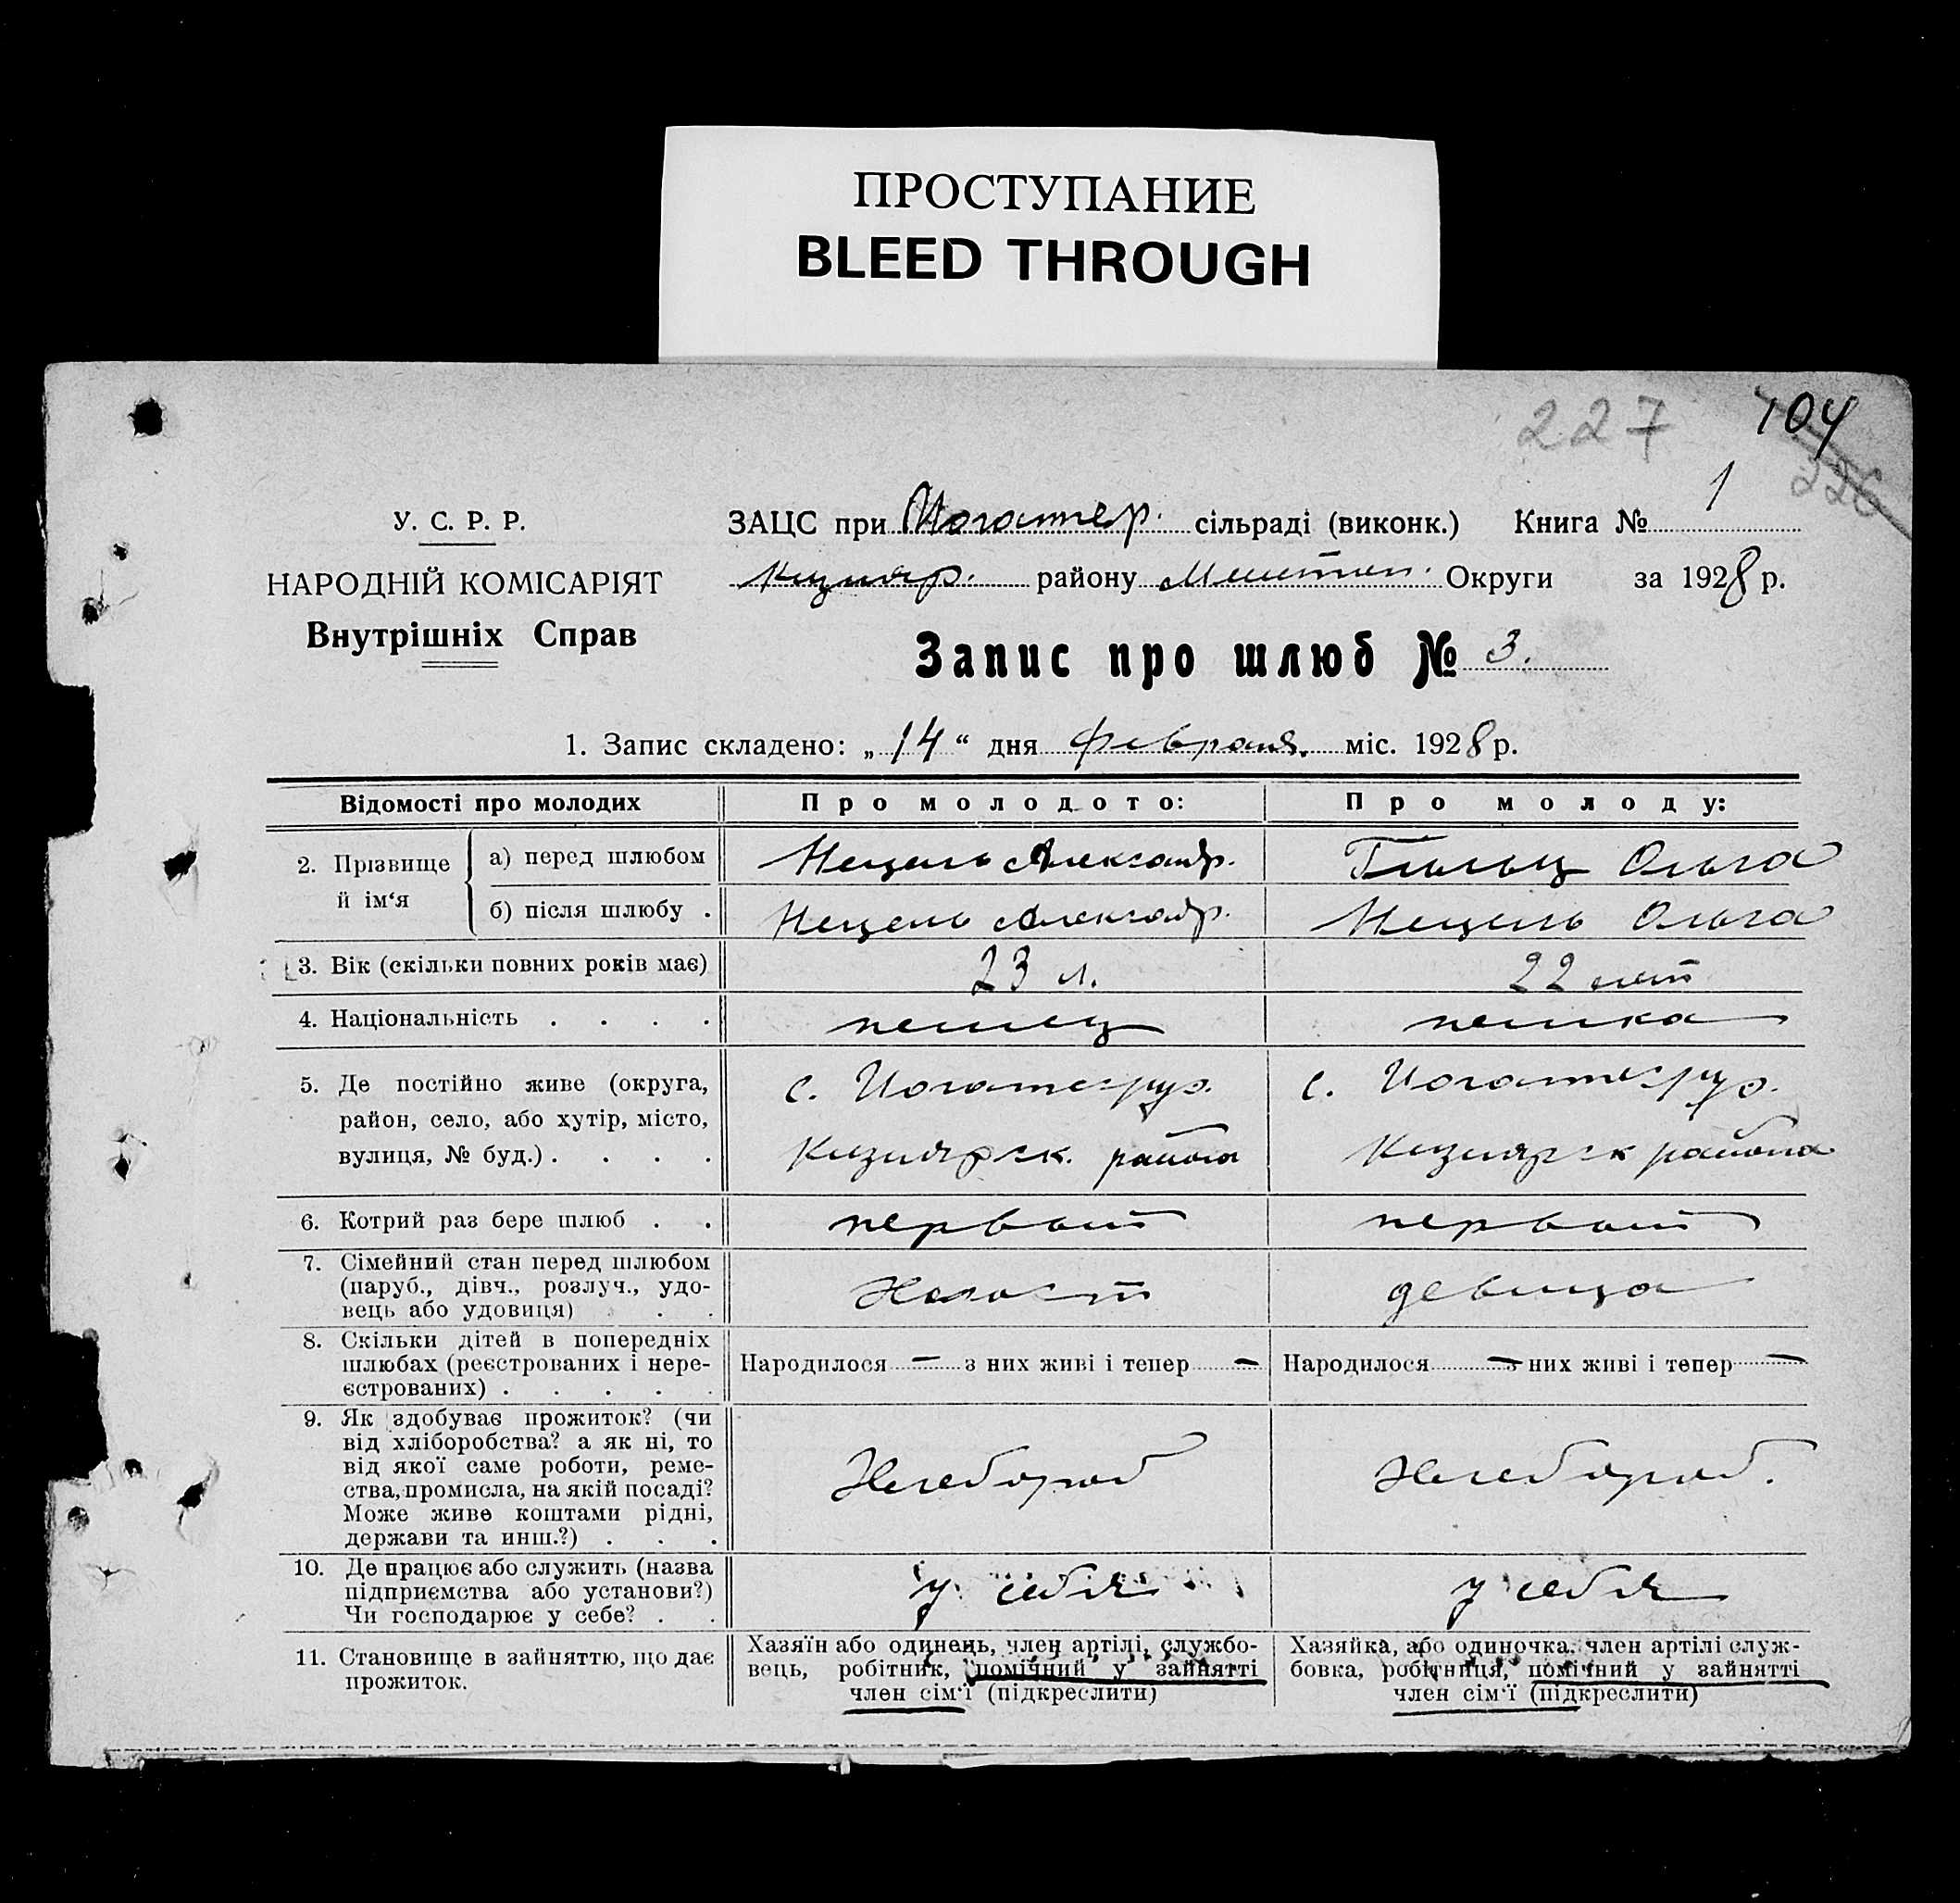 ПРОСТУПАНИЕ
BLEED THROUGH
227 104
226
У. С. Р. Р.
НАРОДНІЙ КОМІСАРІЯТ
Внутрішніх Справ
ЗАЦС при сільраді (виконк.) Книга № 1
Кизияр. району Мелитоп. Округи за 1928 р.
Запис про шлюб № 3.
1. Запис складено: „14“ дня февраля. міс. 1928 р.
Відомості про молодих Про молодого: Про молоду:
2. Прізвище й ім‘я
а) перед шлюбом Нецель Александр. Ольга
б) після шлюбу . Нецель Александр. Нецель Ольга
3. Вік (скільки повних років має) 23 л. 22 лет
4. Національність . . . . немец немка
5. Де постійно живе (округа, район, село, або хутір, місто, вулиця, № буд.) . . . .
с. Кизиярск. района
с. Кизиярск района
6. Котрий раз бере шлюб . . первый первый
7. Сімейний стан перед шлюбом (паруб., дівч., розлуч., удовець або удовиця) . . Холост девица
8. Скільки дітей в попередніх шлюбах (реєстрованих і нереєстрованих) . . . . .
Народилося — з них живі і тепер —
Народилося — з них живі і тепер —
9. Як здобуває прожиток? (чи від хліборобства? а як ні, то від якої саме роботи, ремества, промисла, на якій посаді? Може живе коштами рідні, держави та инш.?) . . .
Хлебороб Хлебороб.
10. Де працює або служить (назва підприємства або установи?) Чи господарює у себе? . . у себя у себя
11. Становище в зайняттю, що дає прожиток.
Хазяїн або одинець, член артілі, службовець, робітник, помічний у зайнятті член сім‘ї (підкреслити)
Хазяйка, або одиночка, член артілі службовка, робітниця, помічний у зайнятті член сім‘ї (підкреслити)